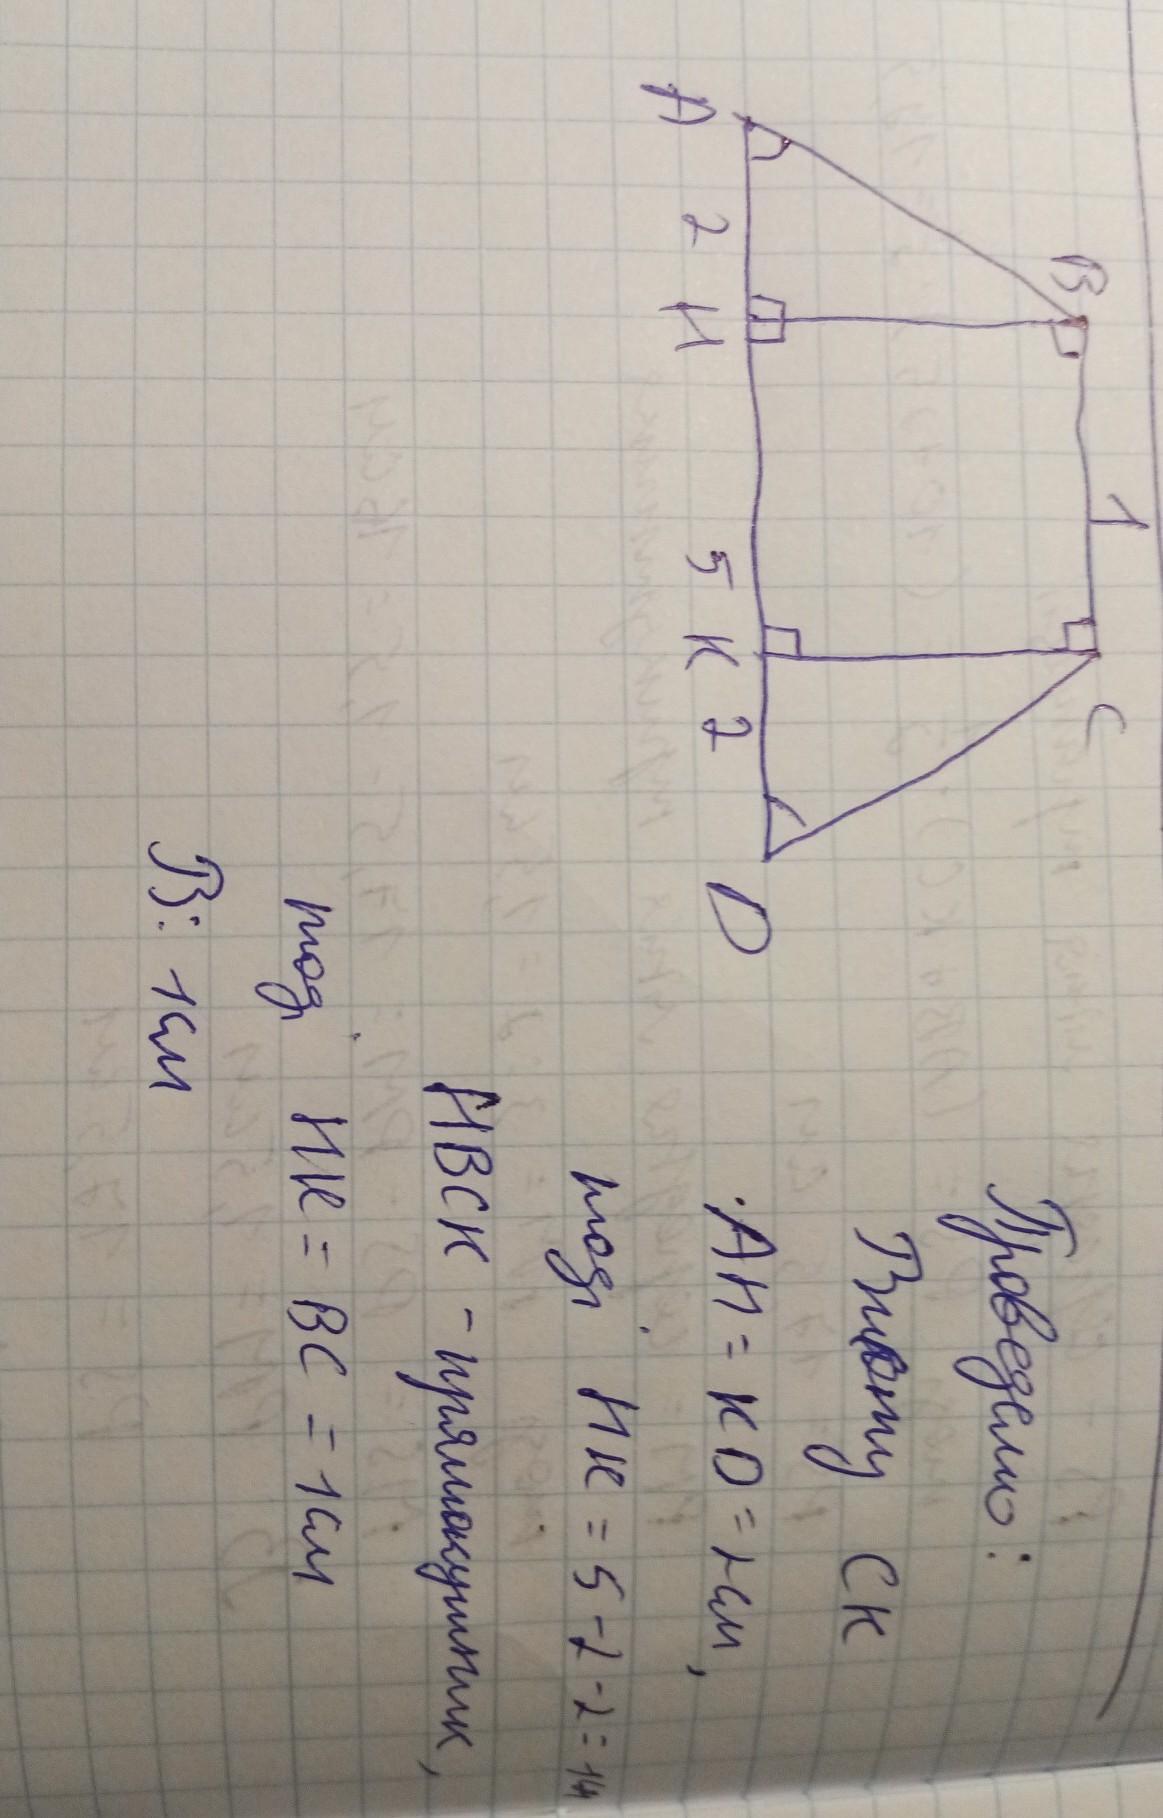 B
1
C
A
2
H
5
K
2
D
Проведемо:
Висоту CK
AH = KD = 2см,
тоді HK = 5-2-2=1см
HBCK - прямокутник,
тоді HK = BC = 1см
В: 1см